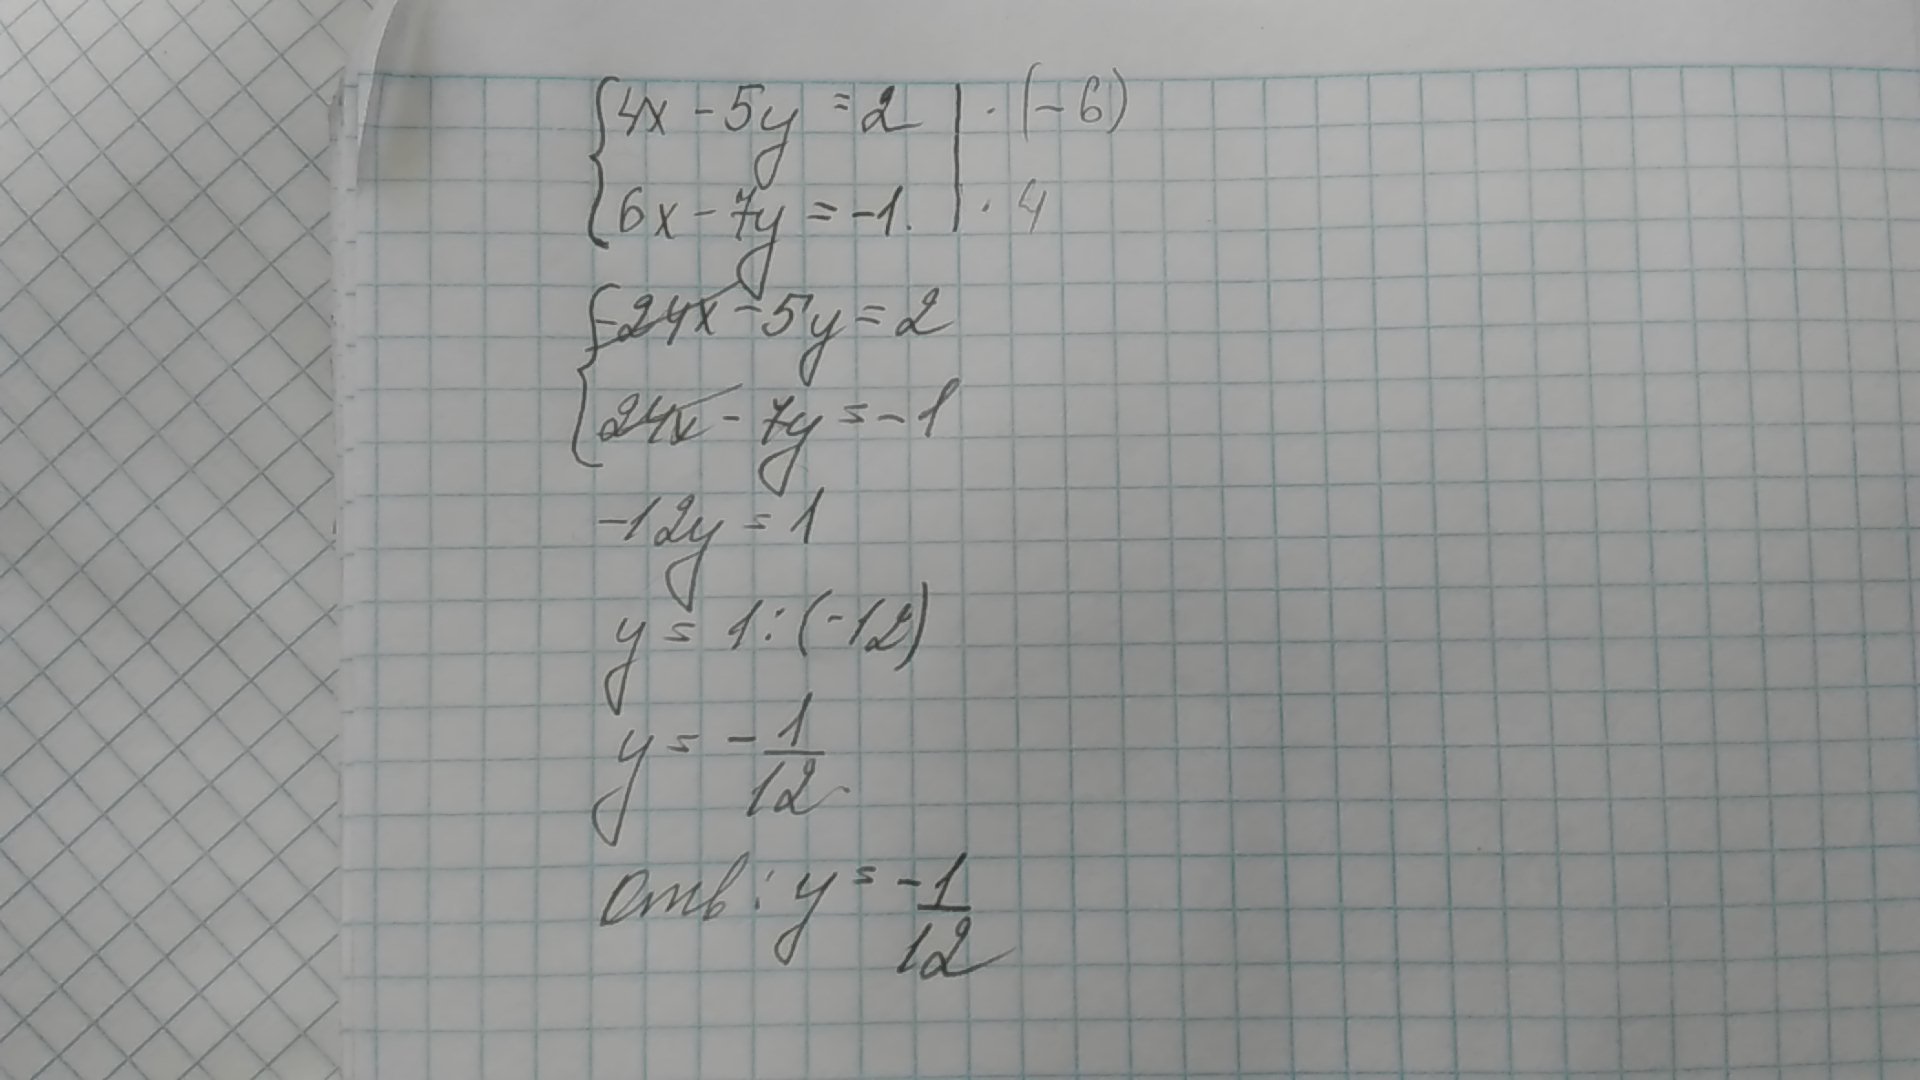 {4x - 5y = 2 | · (-6)
{6x - 7y = -1. | · 4
{-24x - 5y = 2
{24x - 7y = -1
-12y = 1
y = 1 : (-12)
y = - 1/12.
Отв: y = - 1/12